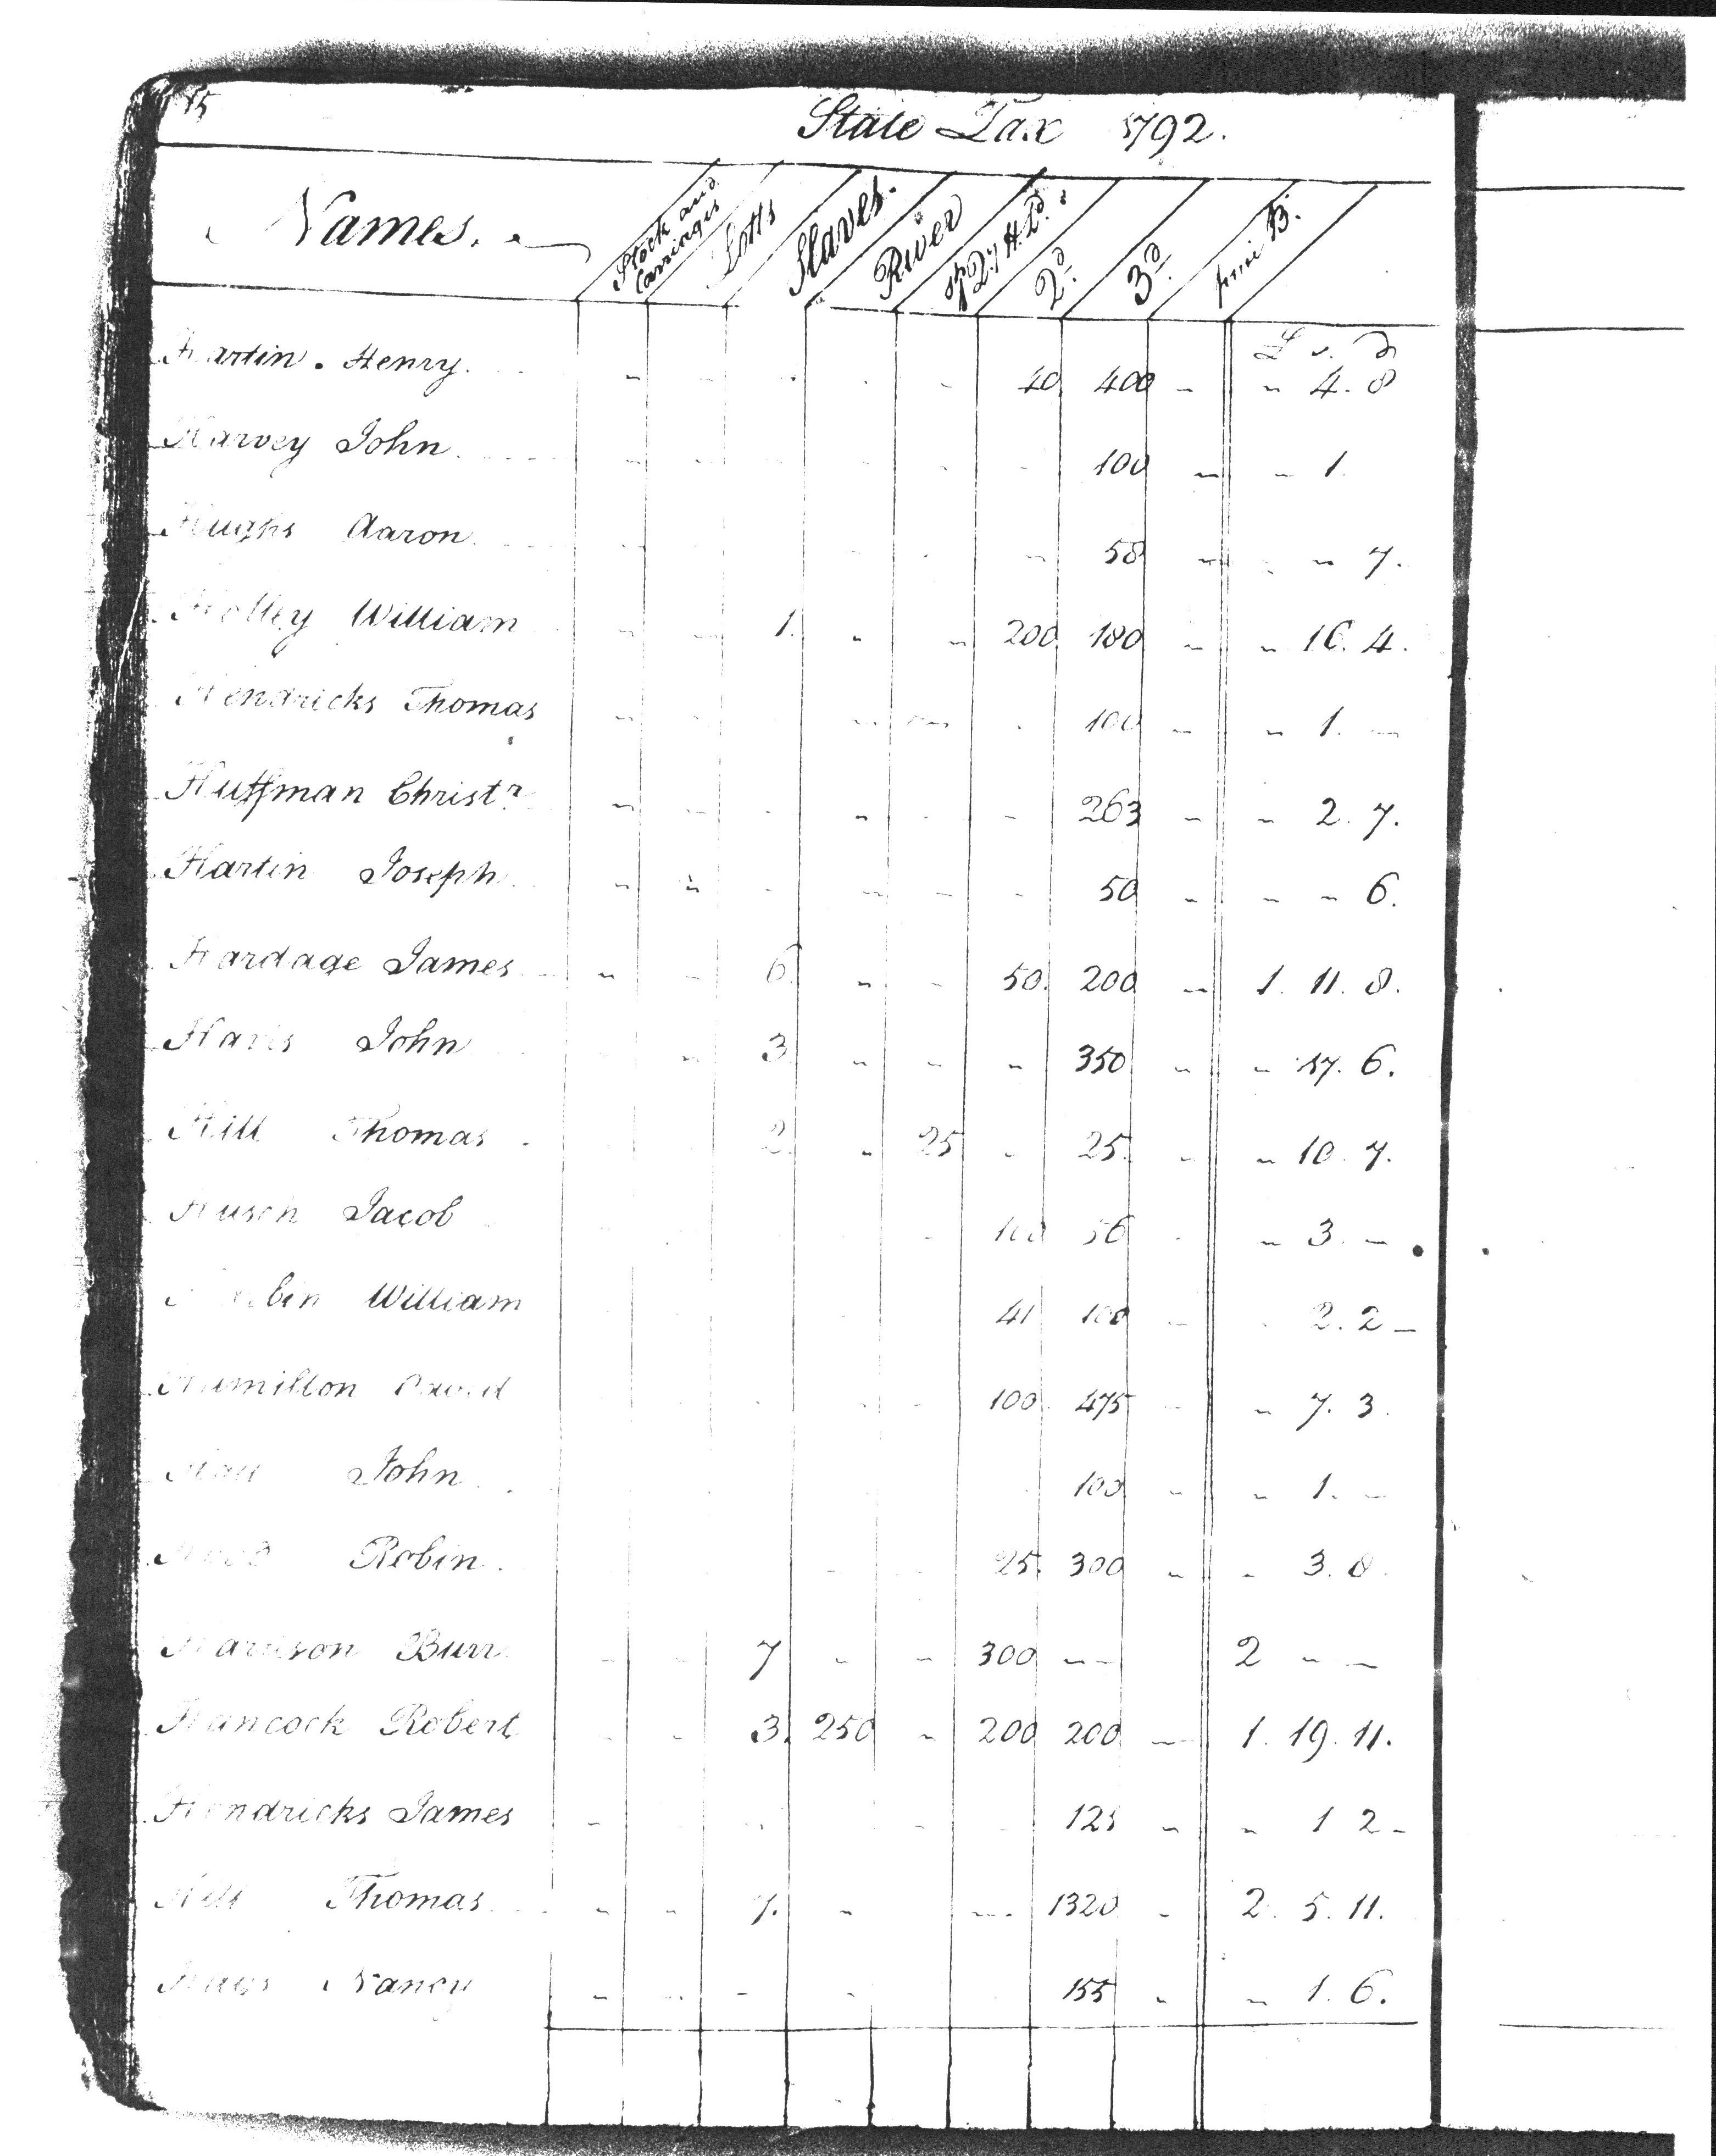 15
State Tax 1792.
Names.
Stock and Carriages
Lotts
Slaves.
River
2d.
3d.
B.
£ s. d
Hartin. Henry. " - - - - 40 400 - " 4. 8
Harvey John " - - - - - 100 - - 1.
Hughs Aaron - - - 58 - - " 7.
Holley William - - 1. - - 200. 180 - " 16. 4.
Hendricks Thomas - - - - - 100 - " 1. -
Huffman Christr - - - - - - 263 - - 2. 7.
Hartin Joseph - - - - - - 50 - - - 6.
Hardage James - - 6. - - 50. 200 - 1. 11. 8.
Haris John - 3 - - - 350 - - 17. 6.
Hill Thomas 2. - 25 - 25. - " 10. 7.
Husch Jacob - 100 56 - - 3. -
William 41 100 - - 2. 2 -
Hamilton David - - - 100. 475 - - 7. 3.
John 100 - - 1. -
Robin. - - 25. 300 - - 3. 8.
Harrison Burr - - 7 - - 300 - - 2 - -
Hancock Robert - - 3. 250 - 200 200 - 1. 19. 11.
Hendricks James - - - - 125 - - 1 2 -
Thomas - - 7. - - 1320 - 2. 5. 11.
Nancy - - - - - 155 - - 1. 6.